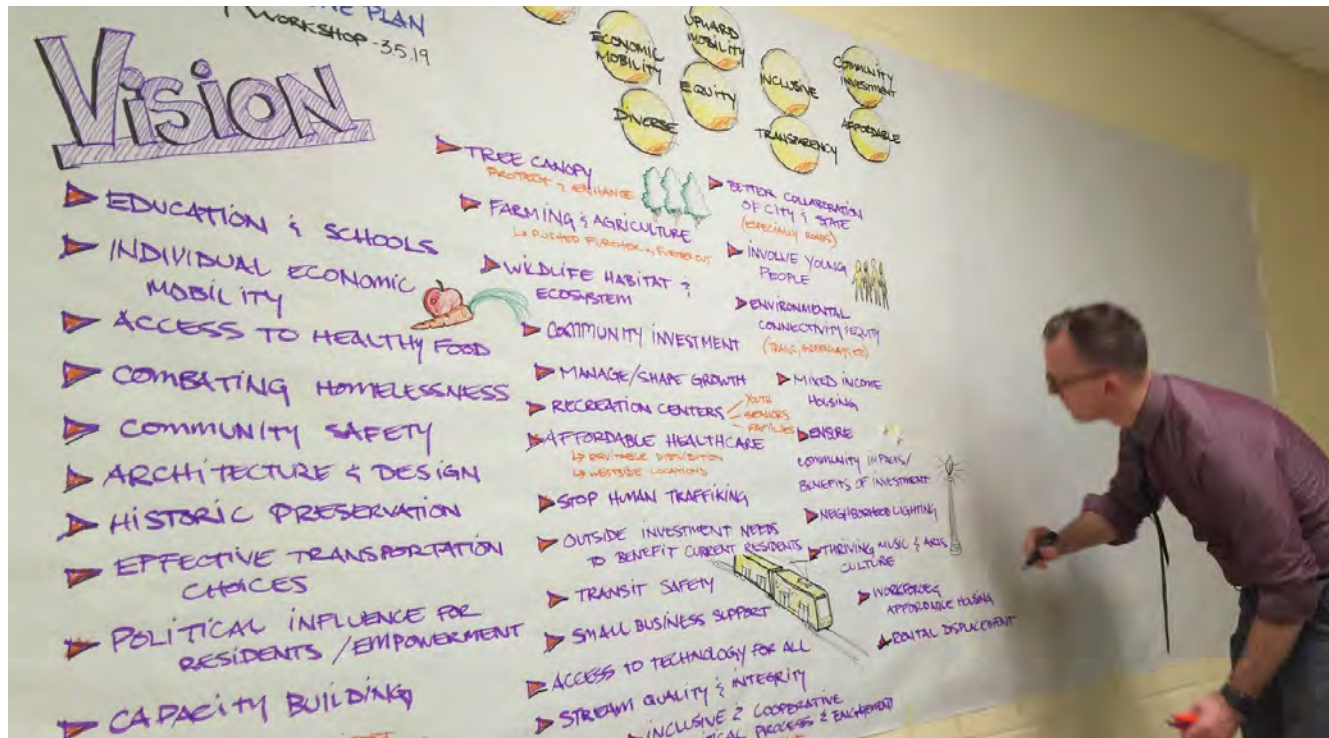 PLAN
WORKSHOP - 3.5.19
VISION
ECONOMIC
MOBILITY
UPWARD
MOBILITY
EQUITY
DIVERSE
INCLUSIVE
TRANSPARENCY
COMMUNITY
INVESTMENT
AFFORDABLE
EDUCATION & SCHOOLS
INDIVIDUAL ECONOMIC
MOBILITY
ACCESS TO HEALTHY FOOD
COMBATING HOMELESSNESS
COMMUNITY SAFETY
ARCHITECTURE & DESIGN
HISTORIC PRESERVATION
EFFECTIVE TRANSPORTATION
CHOICES
POLITICAL INFLUENCE FOR
RESIDENTS / EMPOWERMENT
CAPACITY BUILDING
TREE CANOPY
PROTECT & ENHANCE
FARMING & AGRICULTURE
↳ PUSHED FURTHER & FURTHER OUT
WILDLIFE HABITAT &
ECOSYSTEM
COMMUNITY INVESTMENT
MANAGE/SHAPE GROWTH
RECREATION CENTERS
YOUTH
SENIORS
FAMILIES
AFFORDABLE HEALTHCARE
↳ EQUITABLE DISTRIBUTION
↳ WESTSIDE LOCATIONS
STOP HUMAN TRAFFIKING
OUTSIDE INVESTMENT NEEDS
TO BENEFIT CURRENT RESIDENTS
TRANSIT SAFETY
SMALL BUSINESS SUPPORT
ACCESS TO TECHNOLOGY FOR ALL
STREAM QUALITY & INTEGRITY
INCLUSIVE & COOPERATIVE
PROCESS & ENGAGEMENT
BETTER COLLABORATION
OF CITY & STATE
(ESPECIALLY ROADS)
INVOLVE YOUNG
PEOPLE
ENVIRONMENTAL
CONNECTIVITY & EQUITY
(TRAILS, GREENWAYS, ETC)
MIXED INCOME
HOUSING
ENSURE
COMMUNITY
BENEFITS OF INVESTMENT
NEIGHBORHOOD LIGHTING
THRIVING MUSIC & ARTS
CULTURE
WORKFORCE &
AFFORDABLE HOUSING
RENTAL DISPLACEMENT